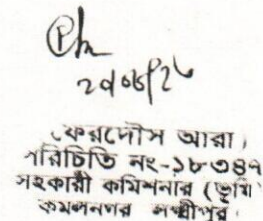 (ফেরদৌস আরা)
পরিচিতি নং-১৮৩৪৭
সহকারী কমিশনার (ভূমি)
কমলনগর লক্ষ্মীপুর।